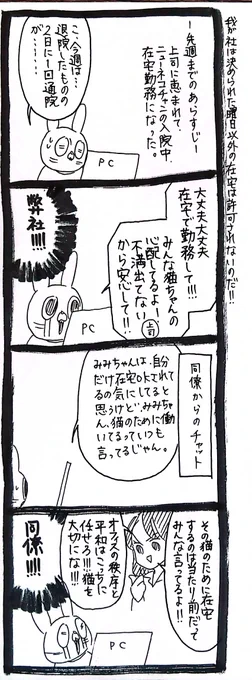 我が社は決められた曜日以外の在宅は許可されないのだ!!
ー先週までのあらすじー
上司に恵まれて、
ニューネコチャンの入院中、
在宅勤務になった。
こ、今週は…
退院したものの
2日に1回通院
が………
PC
大丈夫大丈夫
在宅で勤務して!!!
みんな猫ちゃんの
心配してるよー!
不満出てない
から安心して!!
上司
弊社!!!!
PC
同僚からのチャット
みみちゃんは、自分
だけ在宅OKされて
るの気にしてると
思うけどみみちゃ
ん、猫のために働
いてるっていつも
言ってるじゃん。
その猫のために在宅
するのは当たり前だって
みんな言ってるよ!!
オフィスの秩序と
平和はこっちに
任せろ!!!猫を
大切にな!!!
同僚!!!!
PC